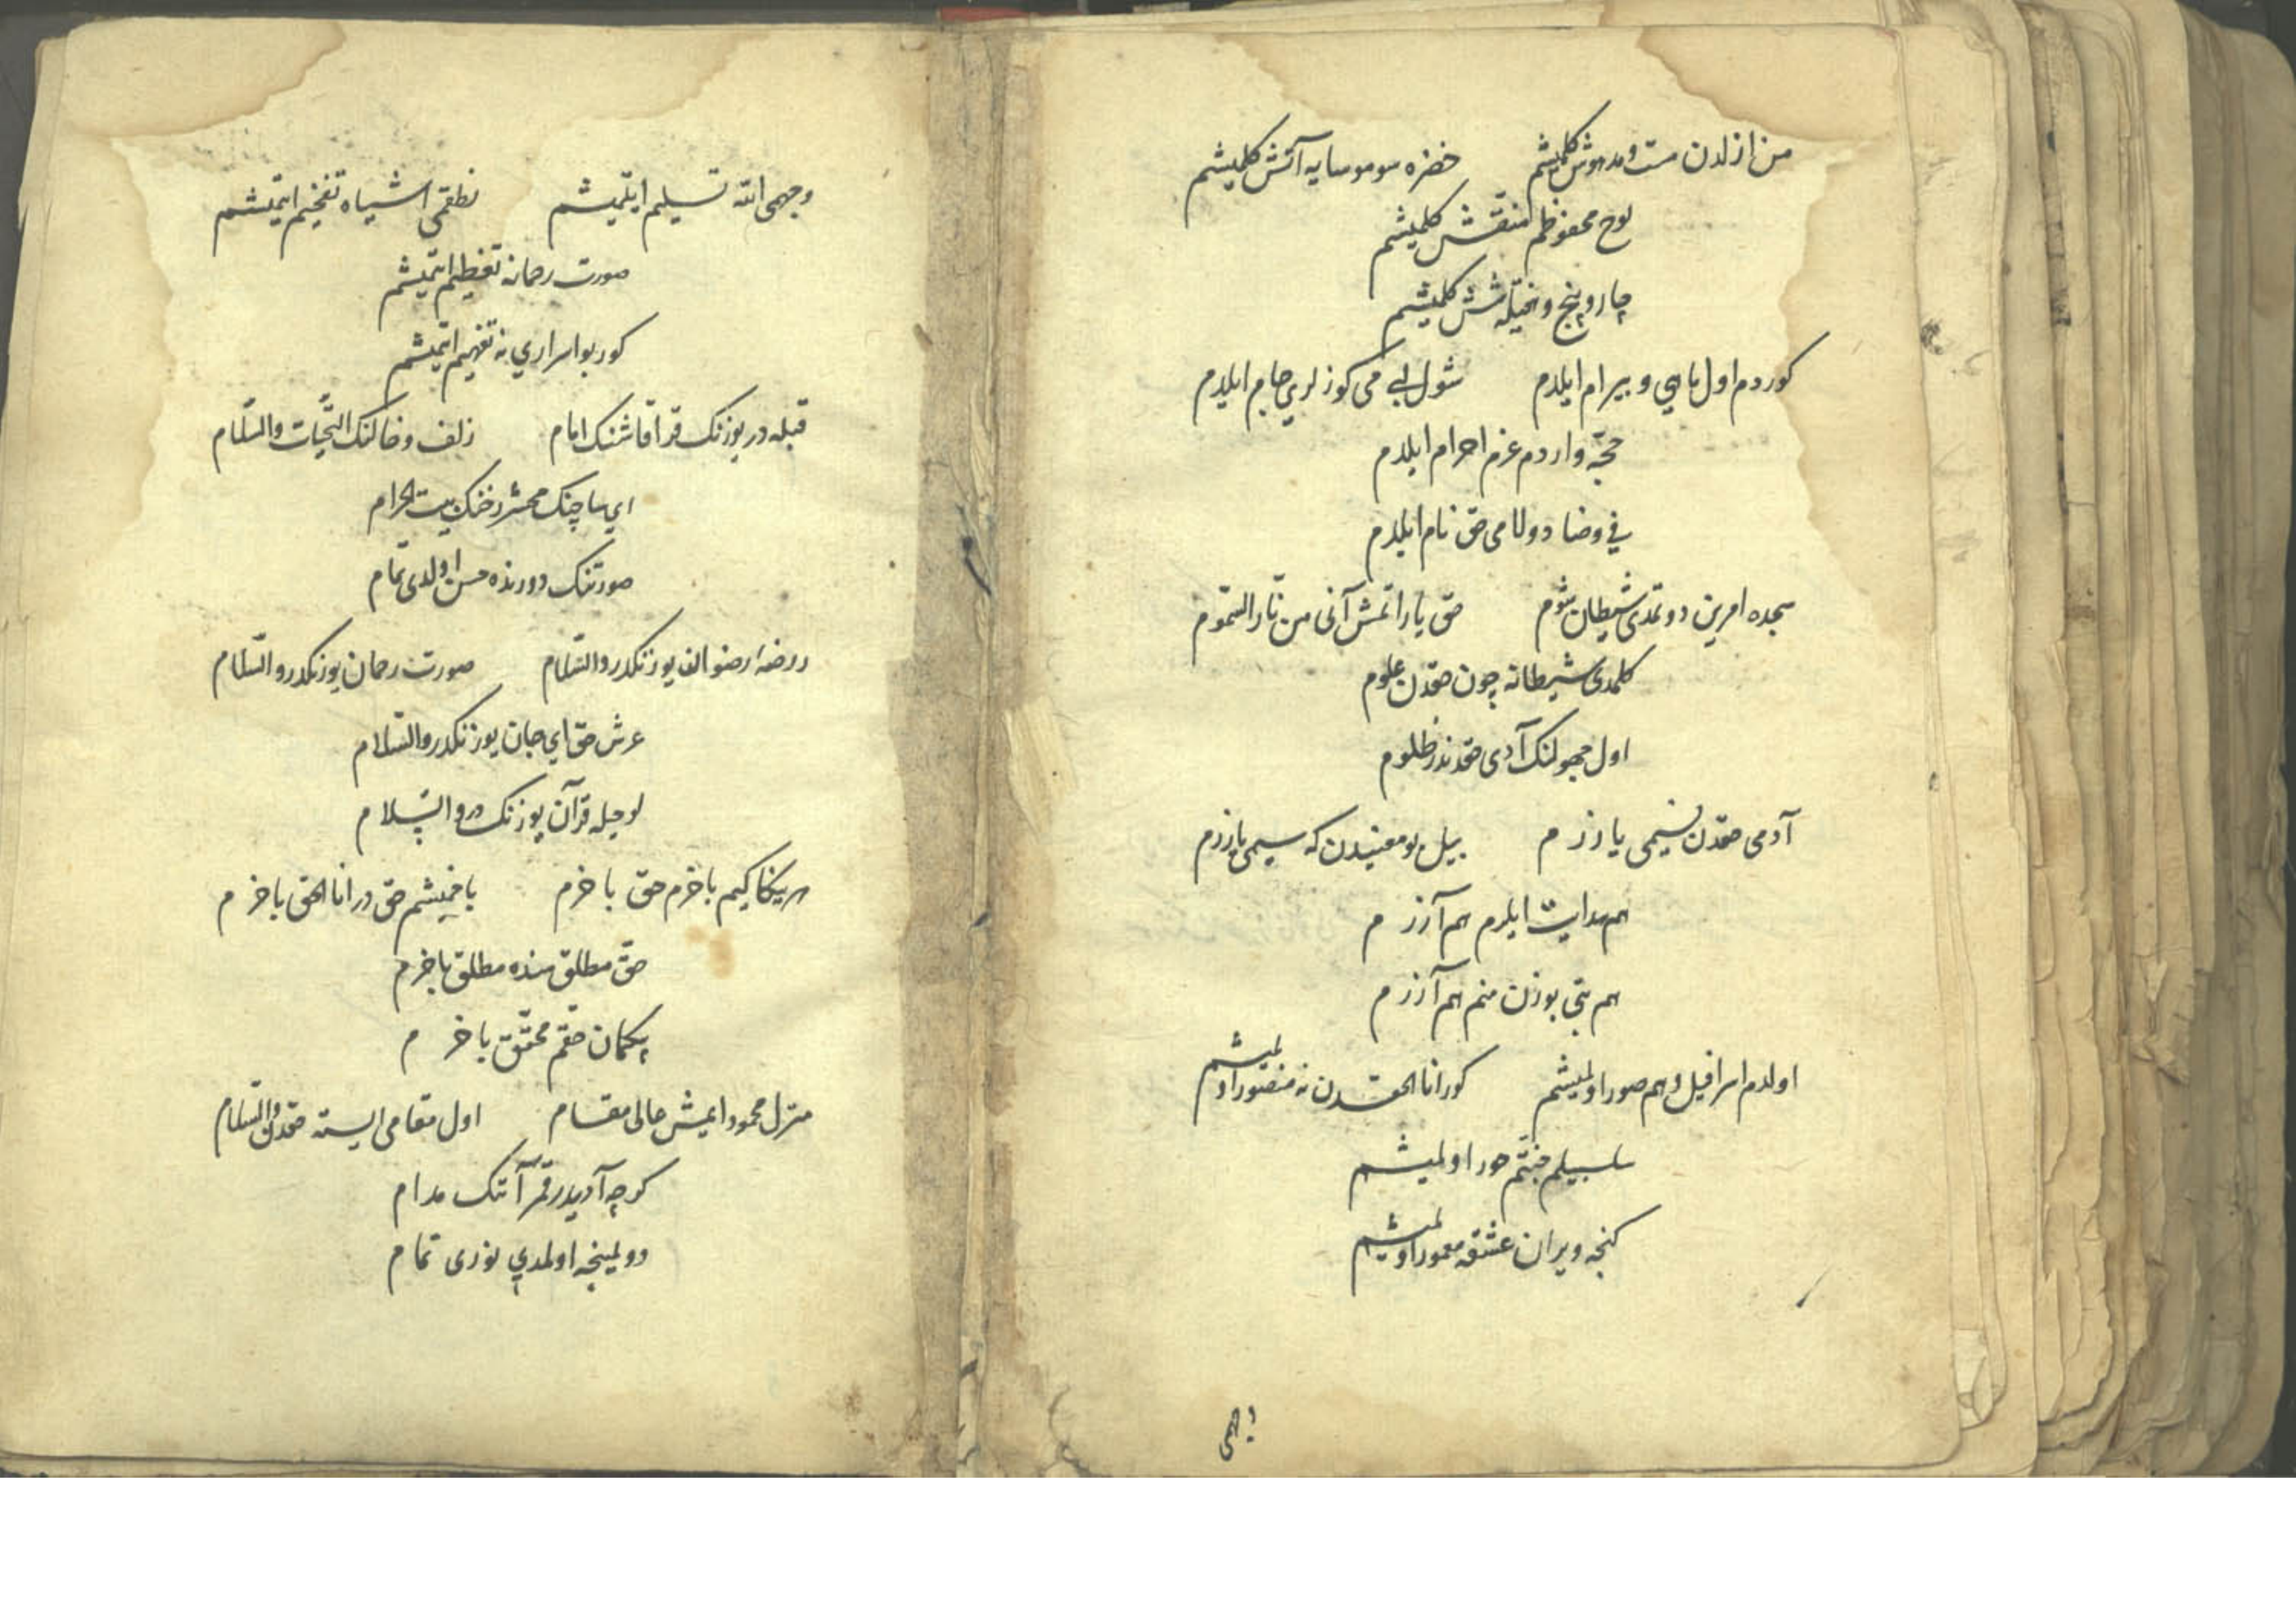 من ازلدن مست و مدهوش کلمیشم خضره سو موسایه آتش کلمیشم
لوح محفوظم منقش کلمیشم
چار و پنج و هفتیله شش کلمیشم
کوردم اول ماهی و بیرام ایلدم شول لبی می کوزلری جام ایلدم
حجّه واردم عزم احرام ایلدم
فی و ضاد و لامی حق نام ایلدم
سجده امرین دوتمدی شیطان شوم حق یاراتمش آنی من نار السّموم
کلمدی شیطانه چون حقدن علوم
اول جهولنک آدی حقدندر ظلوم
آدمی حقدن نسیمی یازرم بیل بو معنیدن که سیمی یازرم
هم هدایت ایلرم هم آزرم
هم بتی بوزن منم هم آزرم
اولدم اسرافیل و هم صور اولمیشم کور انا الحقدن نه منصور اولمیشم
سلسبیلم جنّتم حور اولمیشم
کنجه ویران عشقه معمور اولمیشم
وجهی الله تسلیم ایتمیشم نطقمی اشیاه تفخیم ایتمیشم
صورت رحمانه تعظیم ایتمیشم
کور بو اسراری نه تفهیم ایتمیشم
قبله در یوزنک قرا قاشنک امام زلف و خالنک التّحیات والسّلام
ای ساچنک محشر رخنک بیت الحرام
صورتنک دورنده حسن اولدی تمام
روضهٔ رضوان یوزنکدر والسّلام صورت رحمان یوزنکدر والسّلام
عرش حق ای جان یوزنکدر والسّلام
لوحیله قرآن یوزنکدر والسّلام
هر ینکا کیم باخرم حق باخرم باخمیشم حق در انا الحق باخرم
حقّ مطلق سنده مطلق باخرم
بیکمان حقم محقّق باخرم
منزل محمود ایمیش عالی مقام اول مقامی ایسته حقدن والسّلام
کوچه آدیدر قمر آنک مدام
دولمینجه اولمدی نوری تمام
وجهی